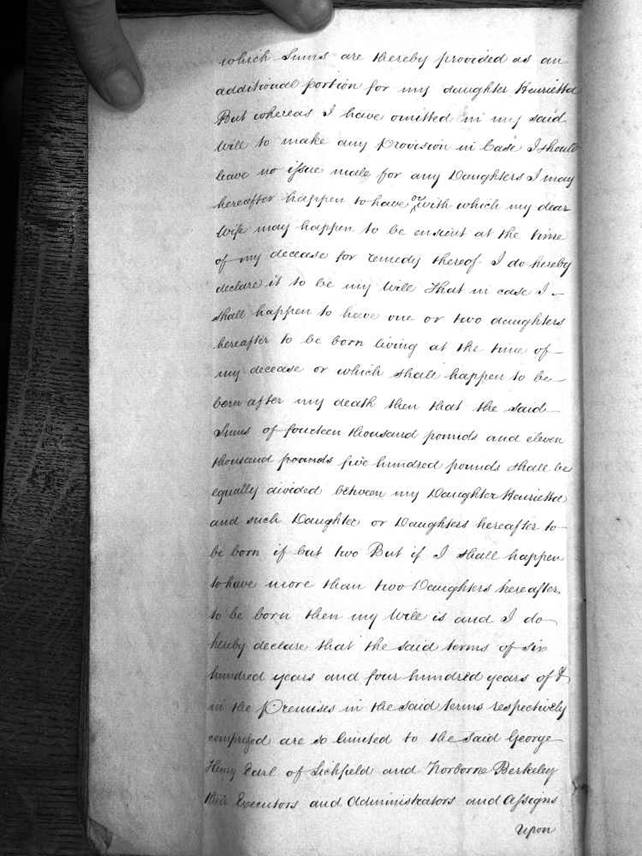 which Sums are thereby provided as an
additional portion for my daughter Henrietta
But whereas I have omitted in my said
Will to make any Provision in Case I should
leave no issue male for any Daughters I may
hereafter happen to have or with which my dear
Wife may happen to be ensient at the time
of my decease for remedy thereof I do hereby
declare it to be my Will That in case I
shall happen to have one or two daughters
hereafter to be born living at the time of
my decease or which shall happen to be
born after my death then that the said
Sums of fourteen thousand pounds and eleven
thousand pounds five hundred pounds shall be
equally divided between my Daughter Henrietta
and such Daughter or Daughters hereafter to
be born if but two But if I shall happen
to have more than two Daughters hereafter
to be born then my Will is and I do
hereby declare that the said terms of six
hundred years and four hundred years of &
in the Premises in the said terms respectively
comprized are so limited to the said George
Henry Earl of Lichfield and Norborne Berkeley
their Executors and Administrators and Assigns
Upon